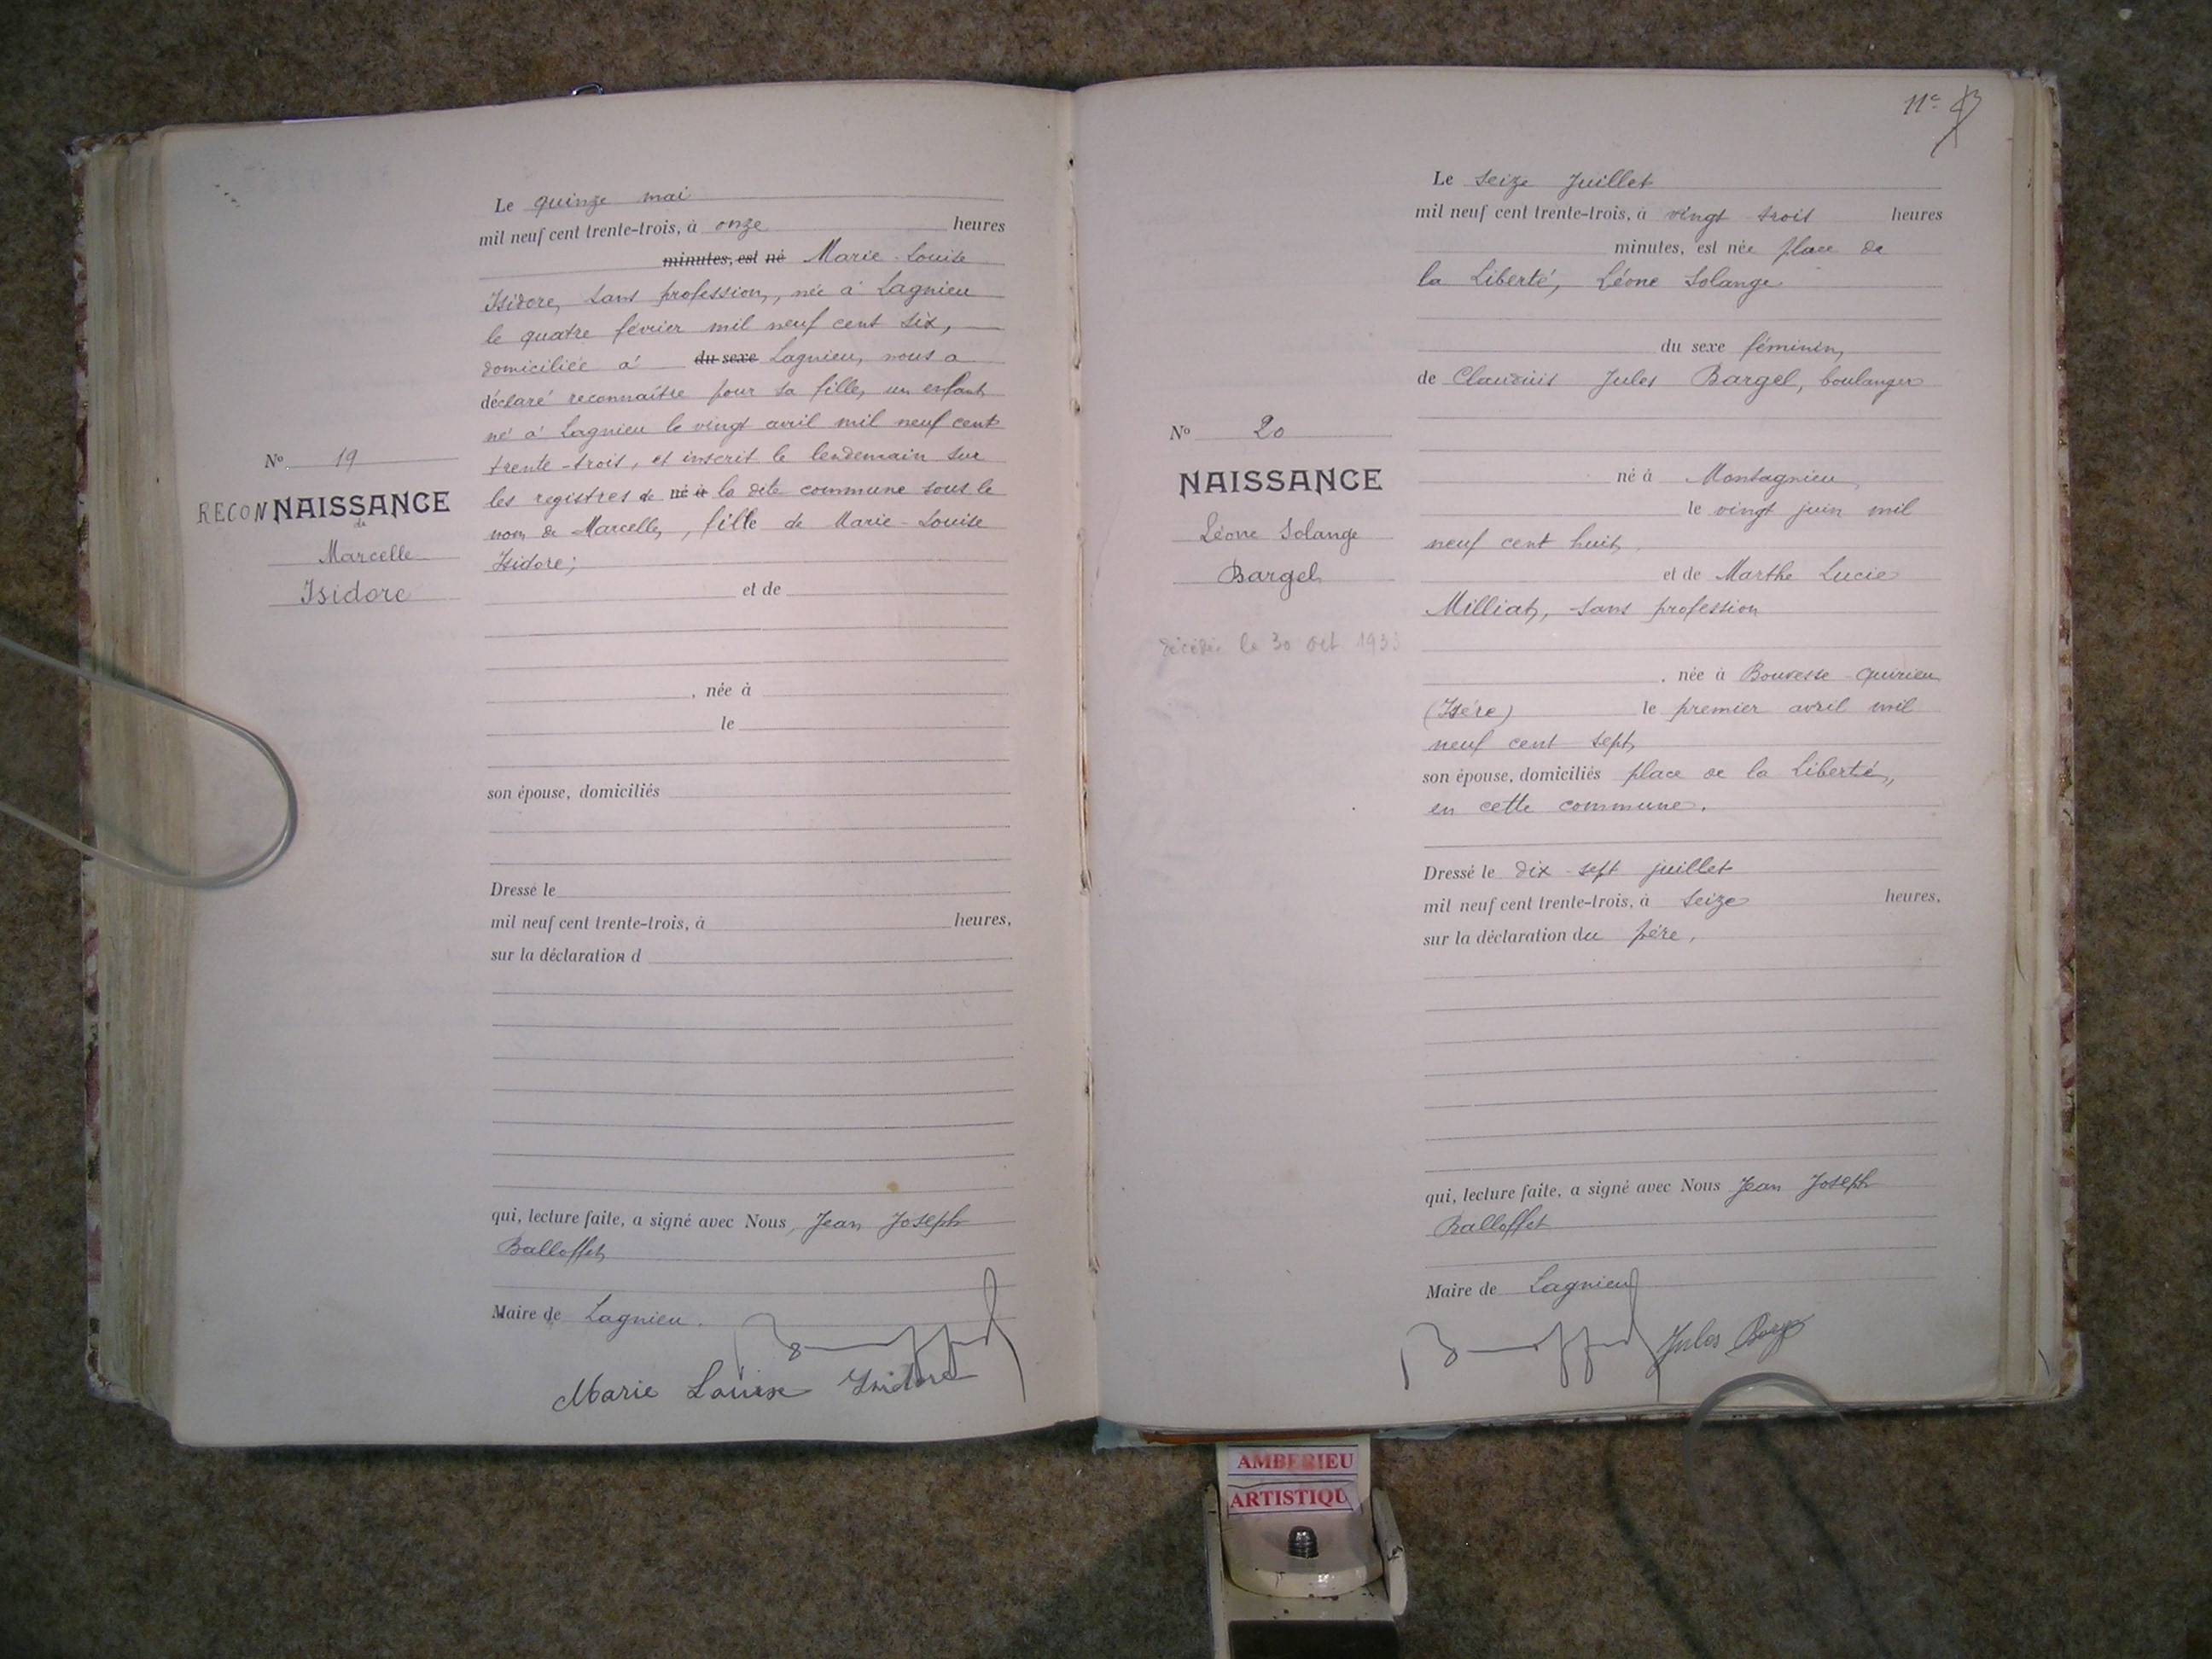 Le quinze mai
mil neuf cent trente-trois, à onze heures
minutes, est né Marie-Louise
Isidore, sans profession, née à Lagnieu
le quatre février mil neuf cent six,
domiciliée à du sexe Lagnieu, nous a
déclaré reconnaître pour sa fille, un enfant
né à Lagnieu le vingt avril mil neuf cent
trente-trois, et inscrit le lendemain sur
les registres de né à la dite commune sous le
nom de Marcelle, fille de Marie-Louise
Isidore;
No 19
RECONNAISSANCE
de
Marcelle
Isidore
et de
, née à
le
son épouse, domiciliés
Dressé le
mil neuf cent trente-trois, à heures,
sur la déclaration d
qui, lecture faite, a signé avec Nous, Jean Joseph
Balloffet
Maire de Lagnieu.
Marie Louise Isidore
11e
Le seize Juillet
mil neuf cent trente-trois, à vingt trois heures
minutes, est née place de
la Liberté, Léone Solange
du sexe féminin,
de Claudius Jules Bargel, boulanger
No 20
NAISSANCE
Léone Solange
Bargel
décédée le 30 oct 193
né à Montagnieu,
le vingt juin mil
neuf cent huit,
et de Marthe Lucie
Milliat, sans profession
, née à Bouvesse-Quirieu
(Isère) le premier avril mil
neuf cent sept,
son épouse, domiciliés place de la Liberté,
en cette commune.
Dressé le dix-sept juillet
mil neuf cent trente-trois, à seize heures,
sur la déclaration du père,
qui, lecture faite, a signé avec Nous Jean Joseph
Balloffet
Maire de Lagnieu
Jules
AMBERIEU
ARTISTIQU